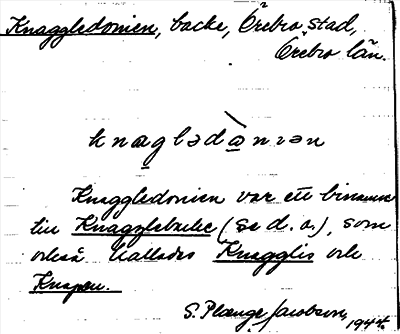 Knaggledonien, backe, Örebro stad,
Örebro län.
knaglədànıən
Knaggledonien var ett binamn
till Knagglebacke (se d. o.), som
också kallades Knagglis och
Knapen.
S. Plænge Jacobson, 1944.